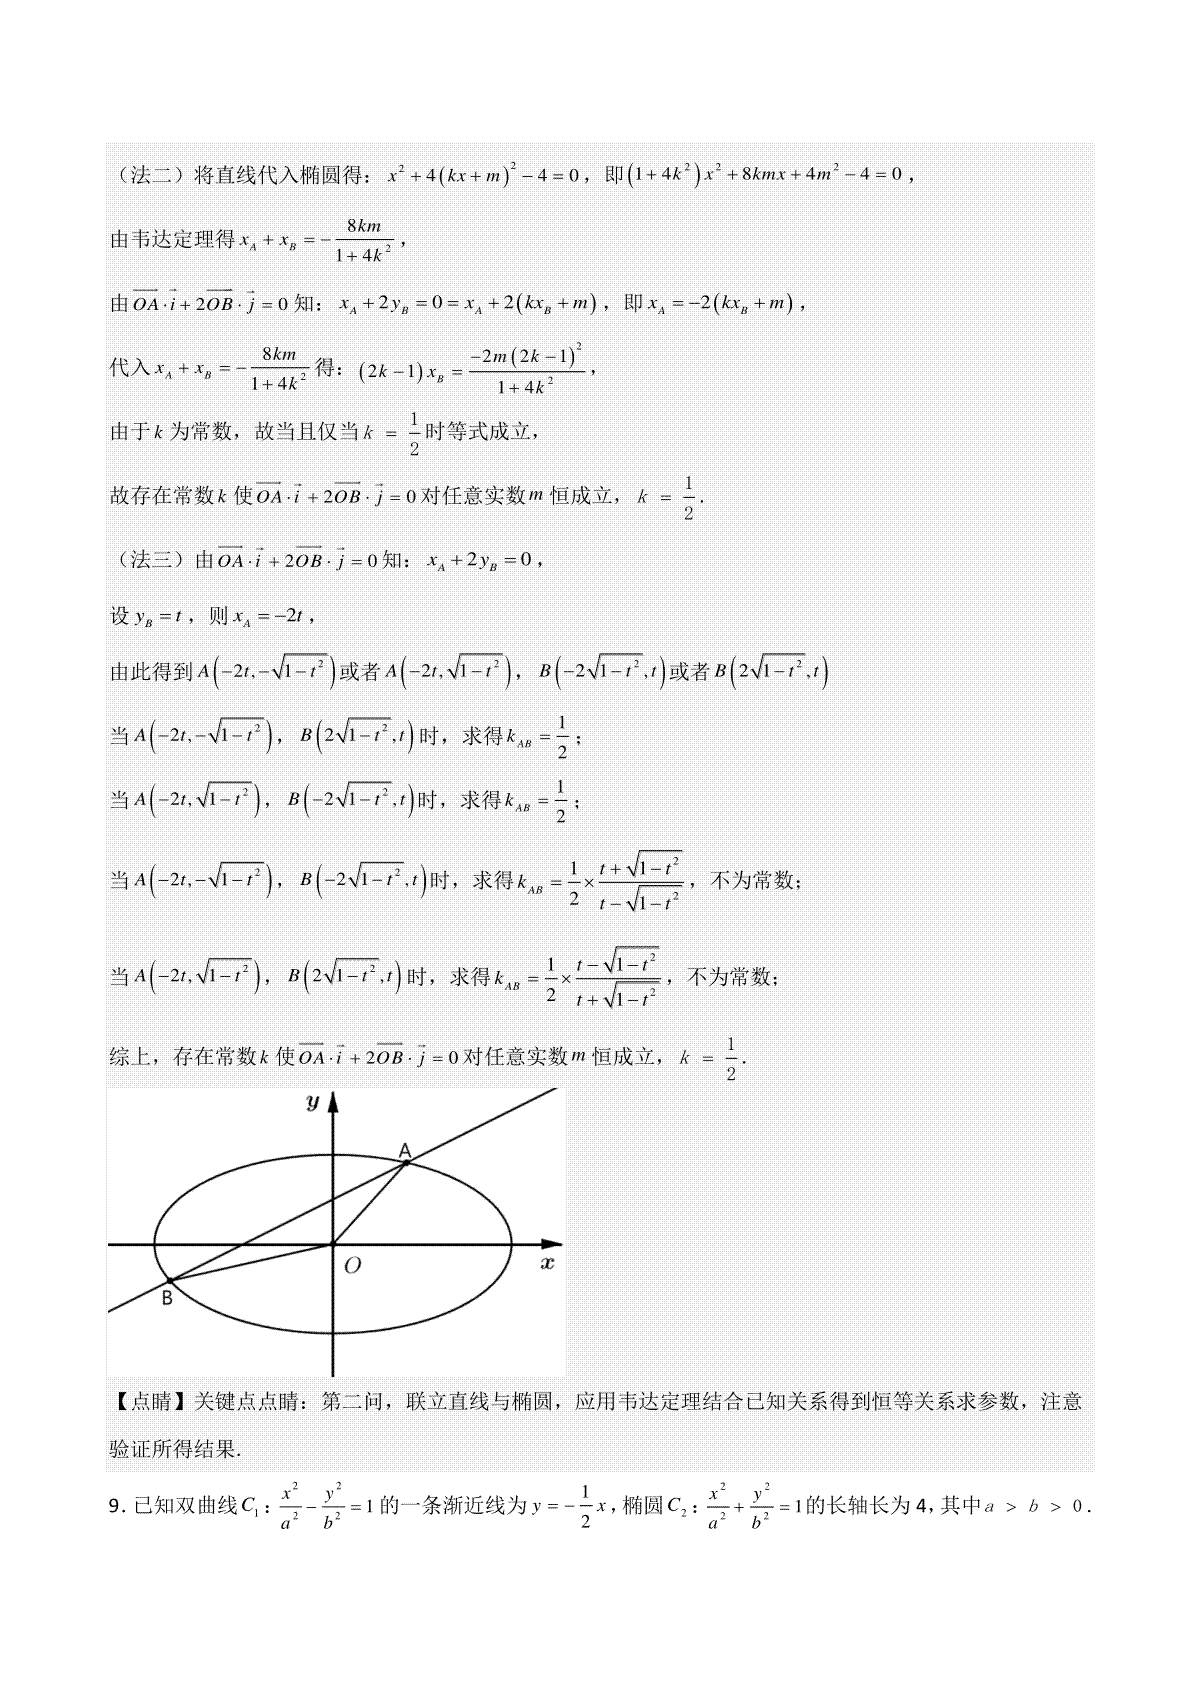 （法二）将直线代入椭圆得：$x^2+4(kx+m)^2-4=0$，即$(1+4k^2)x^2+8kmx+4m^2-4=0$，
由韦达定理得$x_A+x_B=-\frac{8km}{1+4k^2}$，
由$\overrightarrow{OA}\cdot\vec{i}+2\overrightarrow{OB}\cdot\vec{j}=0$知：$x_A+2y_B=0=x_A+2(kx_B+m)$，即$x_A=-2(kx_B+m)$，
代入$x_A+x_B=-\frac{8km}{1+4k^2}$得：$(2k-1)x_B=\frac{-2m(2k-1)^2}{1+4k^2}$，
由于$k$为常数，故当且仅当$k=\frac{1}{2}$时等式成立，
故存在常数$k$使$\overrightarrow{OA}\cdot\vec{i}+2\overrightarrow{OB}\cdot\vec{j}=0$对任意实数$m$恒成立，$k=\frac{1}{2}$.
（法三）由$\overrightarrow{OA}\cdot\vec{i}+2\overrightarrow{OB}\cdot\vec{j}=0$知：$x_A+2y_B=0$，
设$y_B=t$，则$x_A=-2t$，
由此得到$A(-2t,-\sqrt{1-t^2})$或者$A(-2t,\sqrt{1-t^2})$，$B(-2\sqrt{1-t^2},t)$或者$B(2\sqrt{1-t^2},t)$
当$A(-2t,-\sqrt{1-t^2})$，$B(2\sqrt{1-t^2},t)$时，求得$k_{AB}=\frac{1}{2}$；
当$A(-2t,\sqrt{1-t^2})$，$B(-2\sqrt{1-t^2},t)$时，求得$k_{AB}=\frac{1}{2}$；
当$A(-2t,-\sqrt{1-t^2})$，$B(-2\sqrt{1-t^2},t)$时，求得$k_{AB}=\frac{1}{2}\times\frac{t+\sqrt{1-t^2}}{t-\sqrt{1-t^2}}$，不为常数；
当$A(-2t,\sqrt{1-t^2})$，$B(2\sqrt{1-t^2},t)$时，求得$k_{AB}=\frac{1}{2}\times\frac{t-\sqrt{1-t^2}}{t+\sqrt{1-t^2}}$，不为常数；
综上，存在常数$k$使$\overrightarrow{OA}\cdot\vec{i}+2\overrightarrow{OB}\cdot\vec{j}=0$对任意实数$m$恒成立，$k=\frac{1}{2}$.
y
A
O
x
B
【点睛】关键点点睛：第二问，联立直线与椭圆，应用韦达定理结合已知关系得到恒等关系求参数，注意
验证所得结果.
9．已知双曲线$C_1:\frac{x^2}{a^2}-\frac{y^2}{b^2}=1$的一条渐近线为$y=-\frac{1}{2}x$，椭圆$C_2:\frac{x^2}{a^2}+\frac{y^2}{b^2}=1$的长轴长为 4，其中$a>b>0$．